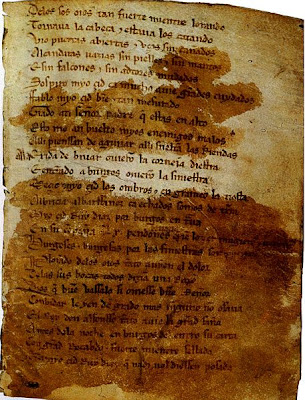 Delos sos oios tan fuerte mientre lorando
Tornaua la cabeça e estaua los catando
Vio puertas abiertas e vços sin cañados
Alcandaras uazias sin pielles e sin mantos
E sin falcones e sin adtores mudados
Sospiro myo çid ca mucho auie grandes cuydados
Fablo myo çid bien e tan mesurado
Grado ati señor padre que estas en alto
Esto me an buelto myos enemigos malos
Alli pienssan de aguijar alli sueltan las Riendas
Ala exida de biuar ouieron la corneia diestra
E entrando a burgos ouieron la siniestra
Meçio myo çid los ombros e engrameo la tiesta
Albricia albarffanez ca echados somos de tierra
Myo çid Ruy diaz por burgos
En su conpaña pendones
Burgeses e burgesas por las finiestras
Plorando delos oios tanto auyen el dolor
Delas sus bocas todos dizian una Razon
Dios que buen vassalo si ouiesse buen Señor
Conbidar le yen de grado mas ninguno non osaua
El Rey don alfonsso tanto auie la grand saña
Antes dela noche en burgos del entro su carta
Con grand Recabdo e fuerte mientre sellada
Que a myo çid Ruy diaz que nadi nol diessen posada